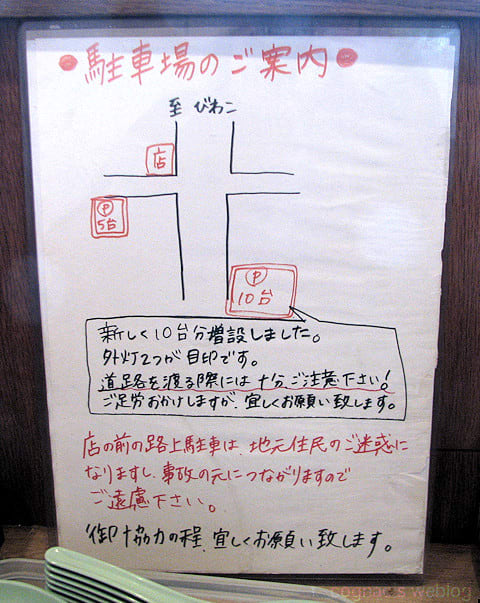 ●駐車場のご案内●
至 びわこ
店
P
5台
P
10台
新しく10台分増設しました。
外灯2つが目印です。
道路を渡る際には十分ご注意下さい!
ご足労おかけしますが、宜しくお願い致します。
店の前の路上駐車は、地元住民のご迷惑に
なりますし、事故の元につながりますので
ご遠慮下さい。
御協力の程、宜しくお願い致します。